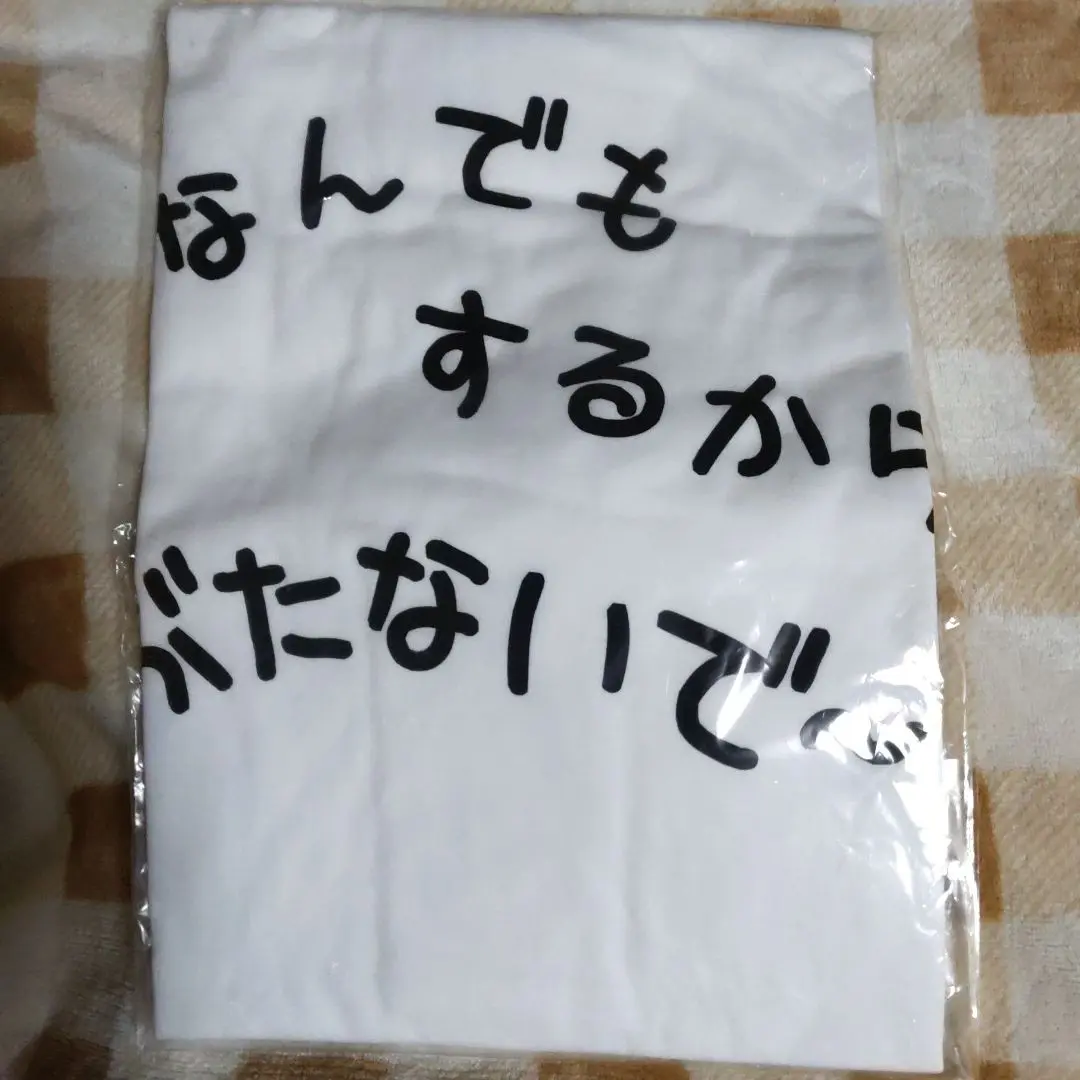 なんでも
するから
ぶたないで